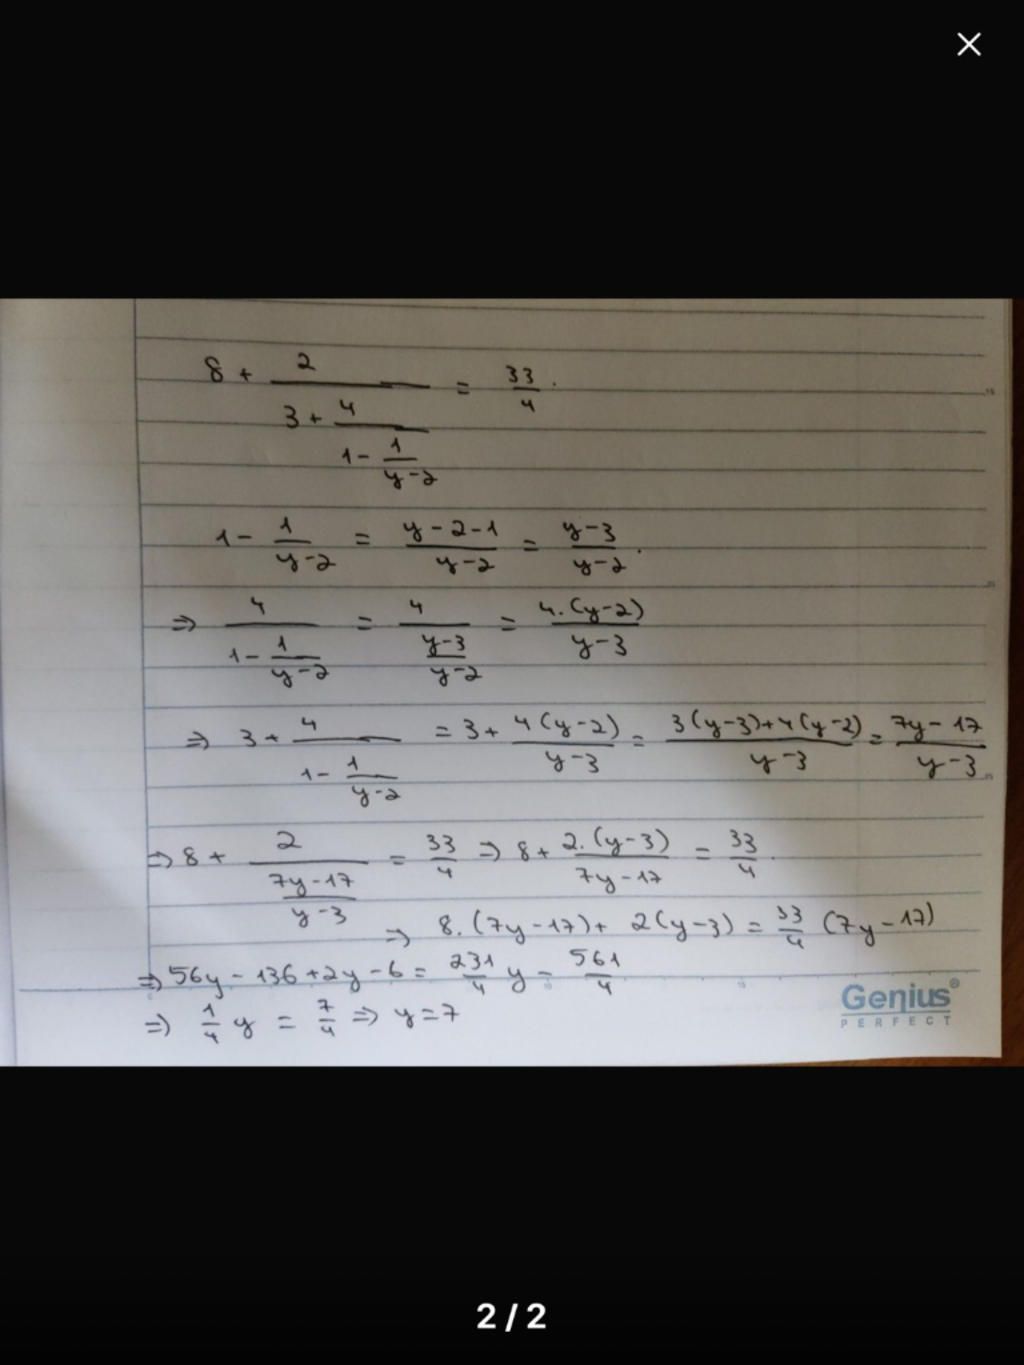 8 + 2/(3 + 4/(1 - 1/(y-2))) = 33/4.
1 - 1/(y-2) = (y-2-1)/(y-2) = (y-3)/(y-2).
⇒ 4/(1 - 1/(y-2)) = 4/((y-3)/(y-2)) = 4.(y-2)/(y-3)
⇒ 3 + 4/(1 - 1/(y-2)) = 3 + 4(y-2)/(y-3) = (3(y-3)+4(y-2))/(y-3) = (7y-17)/(y-3)
⇒ 8 + 2/((7y-17)/(y-3)) = 33/4 ⇒ 8 + 2.(y-3)/(7y-17) = 33/4.
⇒ 8.(7y-17) + 2(y-3) = 33/4 (7y-17)
⇒ 56y - 136 + 2y - 6 = 231/4 y - 561/4
⇒ 1/4 y = 7/4 ⇒ y = 7
Genius®
PERFECT
2 / 2